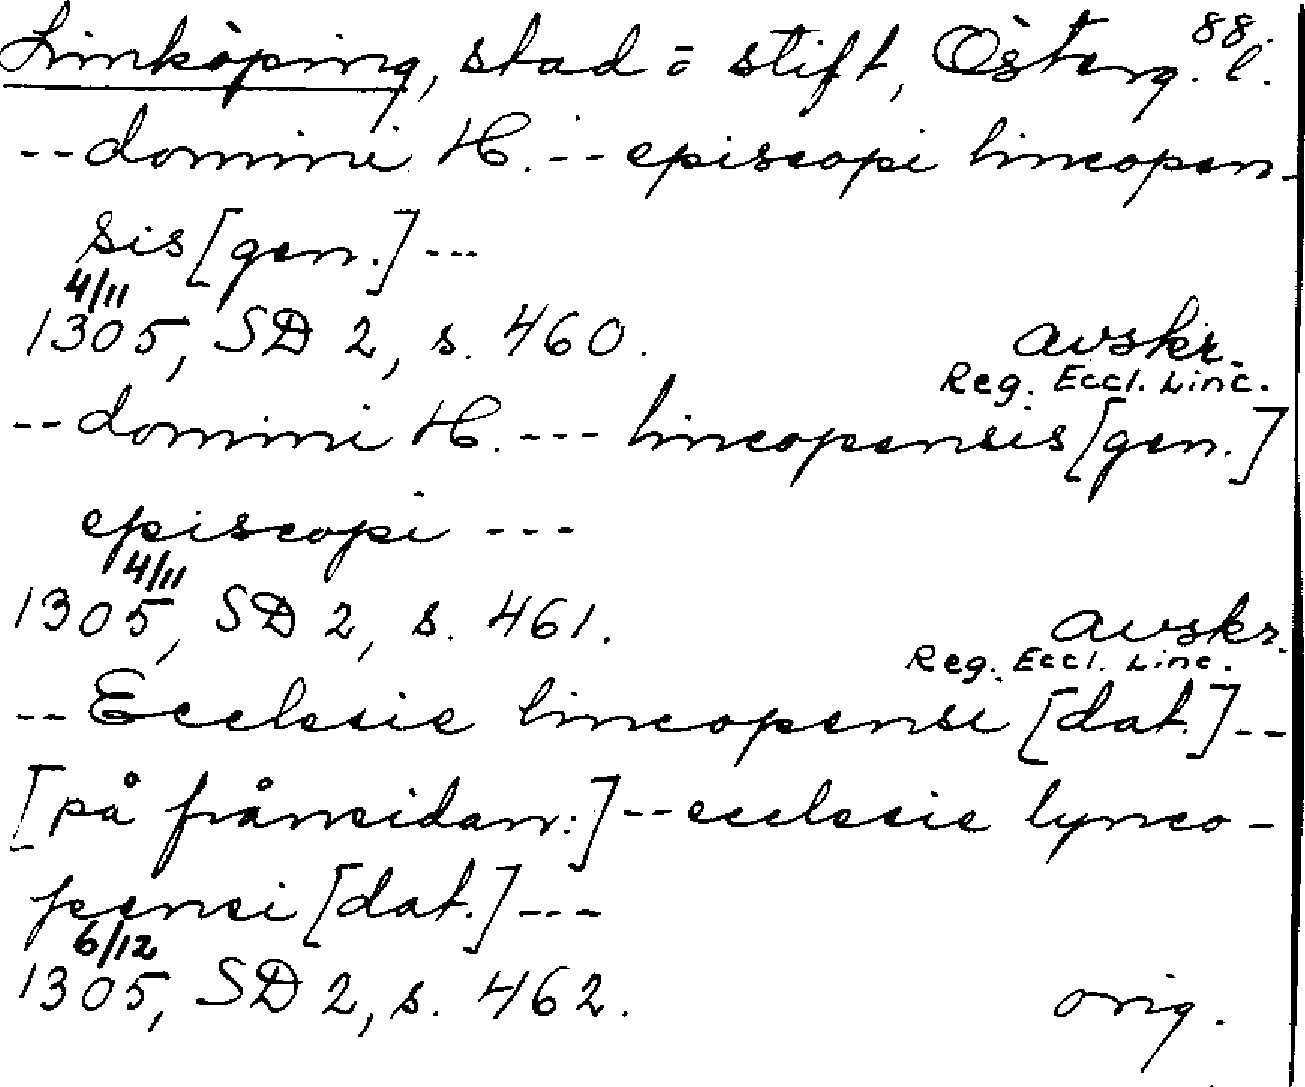 88.
Linköping, stad o stift, Österg. l.
-- domini H. --- episcopi lincopen-
sis [gen.] ---
4/11
1305, SD 2, s. 460. avskr.
Reg. Eccl. Linc.
-- domini H. --- lincopensis [gen.]
episcopi ---
4/11
1305, SD 2, s. 461. avskr.
Reg. Eccl. Linc.
-- Ecclesie lincopensi [dat.] --
[på frånsidan:] -- ecclesie lynco-
pensi [dat.] ---
6/12
1305, SD 2, s. 462. orig.